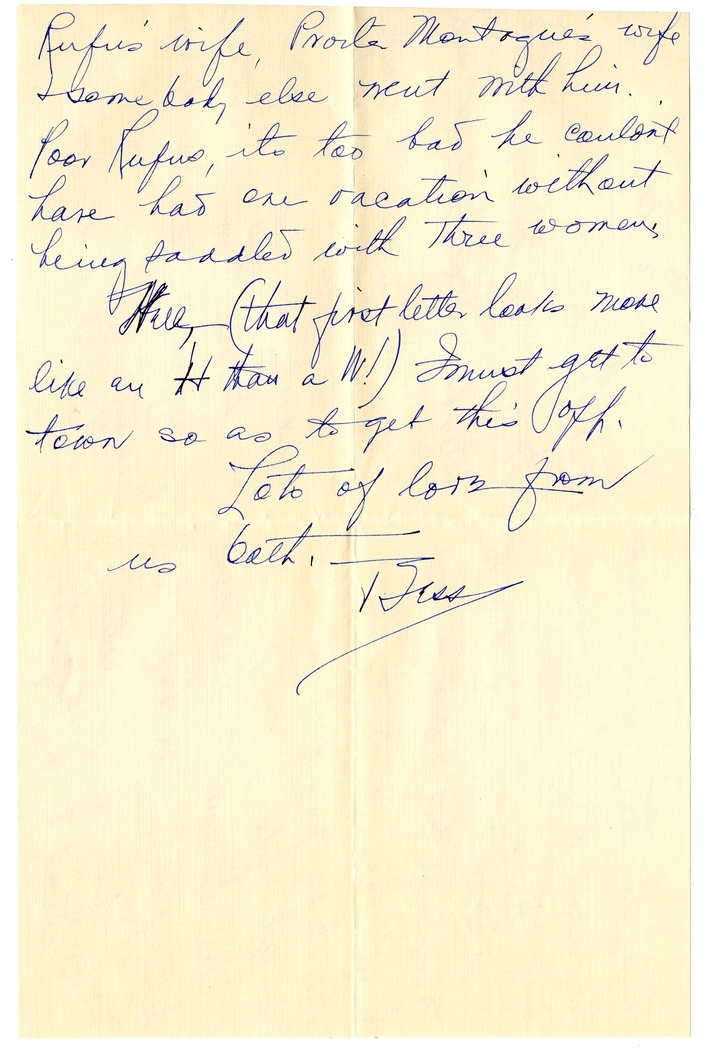 Rufus' wife, Procter Montague's wife
& somebody else went with him.
Poor Rufus, its too bad he couldn't
have had one vacation without
being saddled with three women.
Well, (that first letter looks more
like an H than a W!) I must get to
town so as to get this off.
Lots of love from
us both.
Bess